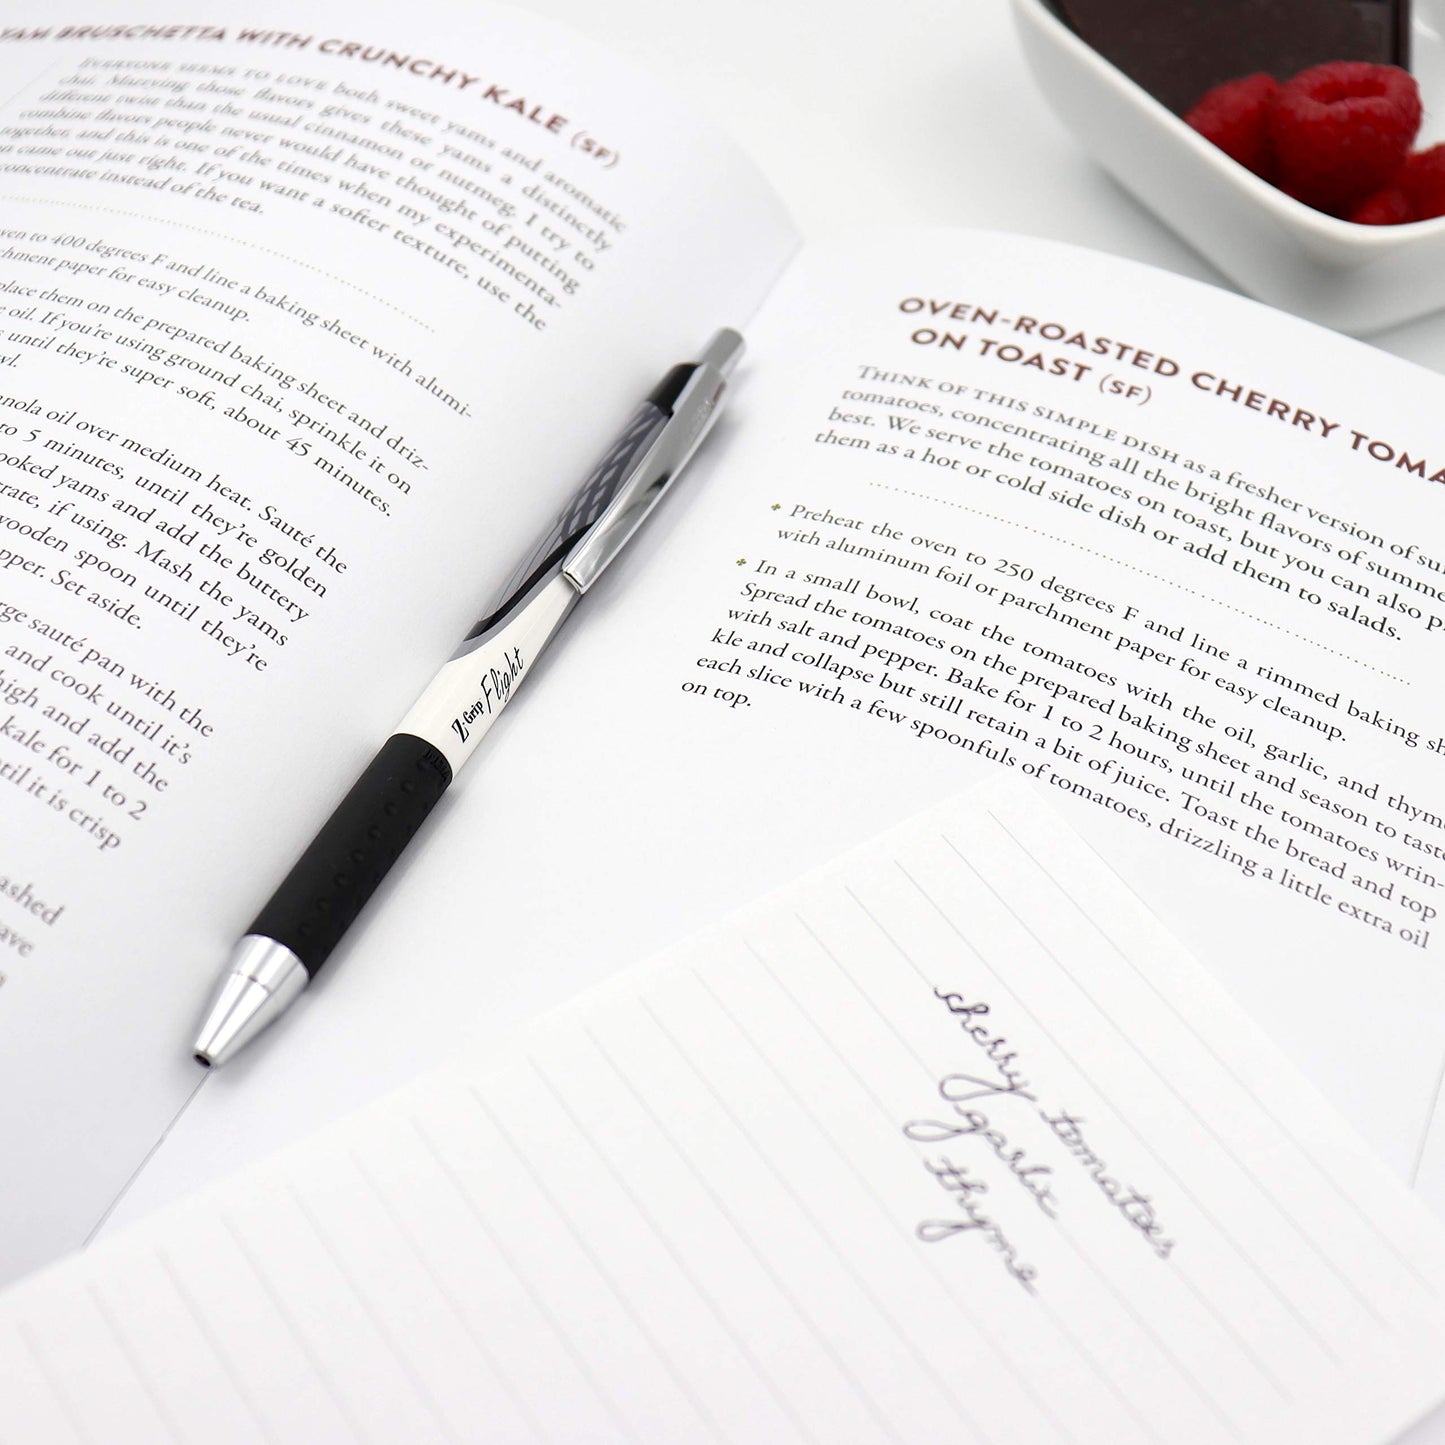 YAM BRUSCHETTA WITH CRUNCHY KALE (SF)
EVERYONE SEEMS TO LOVE both sweet yams and aromatic
chai. Marrying those flavors gives these yams a distinctly
different twist than the usual cinnamon or nutmeg. I try to
combine flavors people never would have thought of putting
together, and this is one of the times when my experimenta-
on came out just right. If you want a softer texture, use the
concentrate instead of the tea.
ven to 400 degrees F and line a baking sheet with alumi-
chment paper for easy cleanup.
place them on the prepared baking sheet and driz-
e oil. If you're using ground chai, sprinkle it on
s until they're super soft, about 45 minutes.
wl.
nola oil over medium heat. Sauté the
to 5 minutes, until they're golden
ooked yams and add the buttery
rate, if using. Mash the yams
wooden spoon until they're
pper. Set aside.
rge sauté pan with the
and cook until it's
high and add the
kale for 1 to 2
til it is crisp
ashed
ave
Z-Grip Flight
OVEN-ROASTED CHERRY TOMA
ON TOAST (SF)
THINK OF THIS SIMPLE DISH as a fresher version of su
tomatoes, concentrating all the bright flavors of summe
best. We serve the tomatoes on toast, but you can also p
them as a hot or cold side dish or add them to salads.
Preheat the oven to 250 degrees F and line a rimmed baking sh
with aluminum foil or parchment paper for easy cleanup.
In a small bowl, coat the tomatoes with the oil, garlic, and thyme
Spread the tomatoes on the prepared baking sheet and season to taste
with salt and pepper. Bake for 1 to 2 hours, until the tomatoes wrin-
kle and collapse but still retain a bit of juice. Toast the bread and top
each slice with a few spoonfuls of tomatoes, drizzling a little extra oil
on top.
cherry tomatoes
garlic
thyme